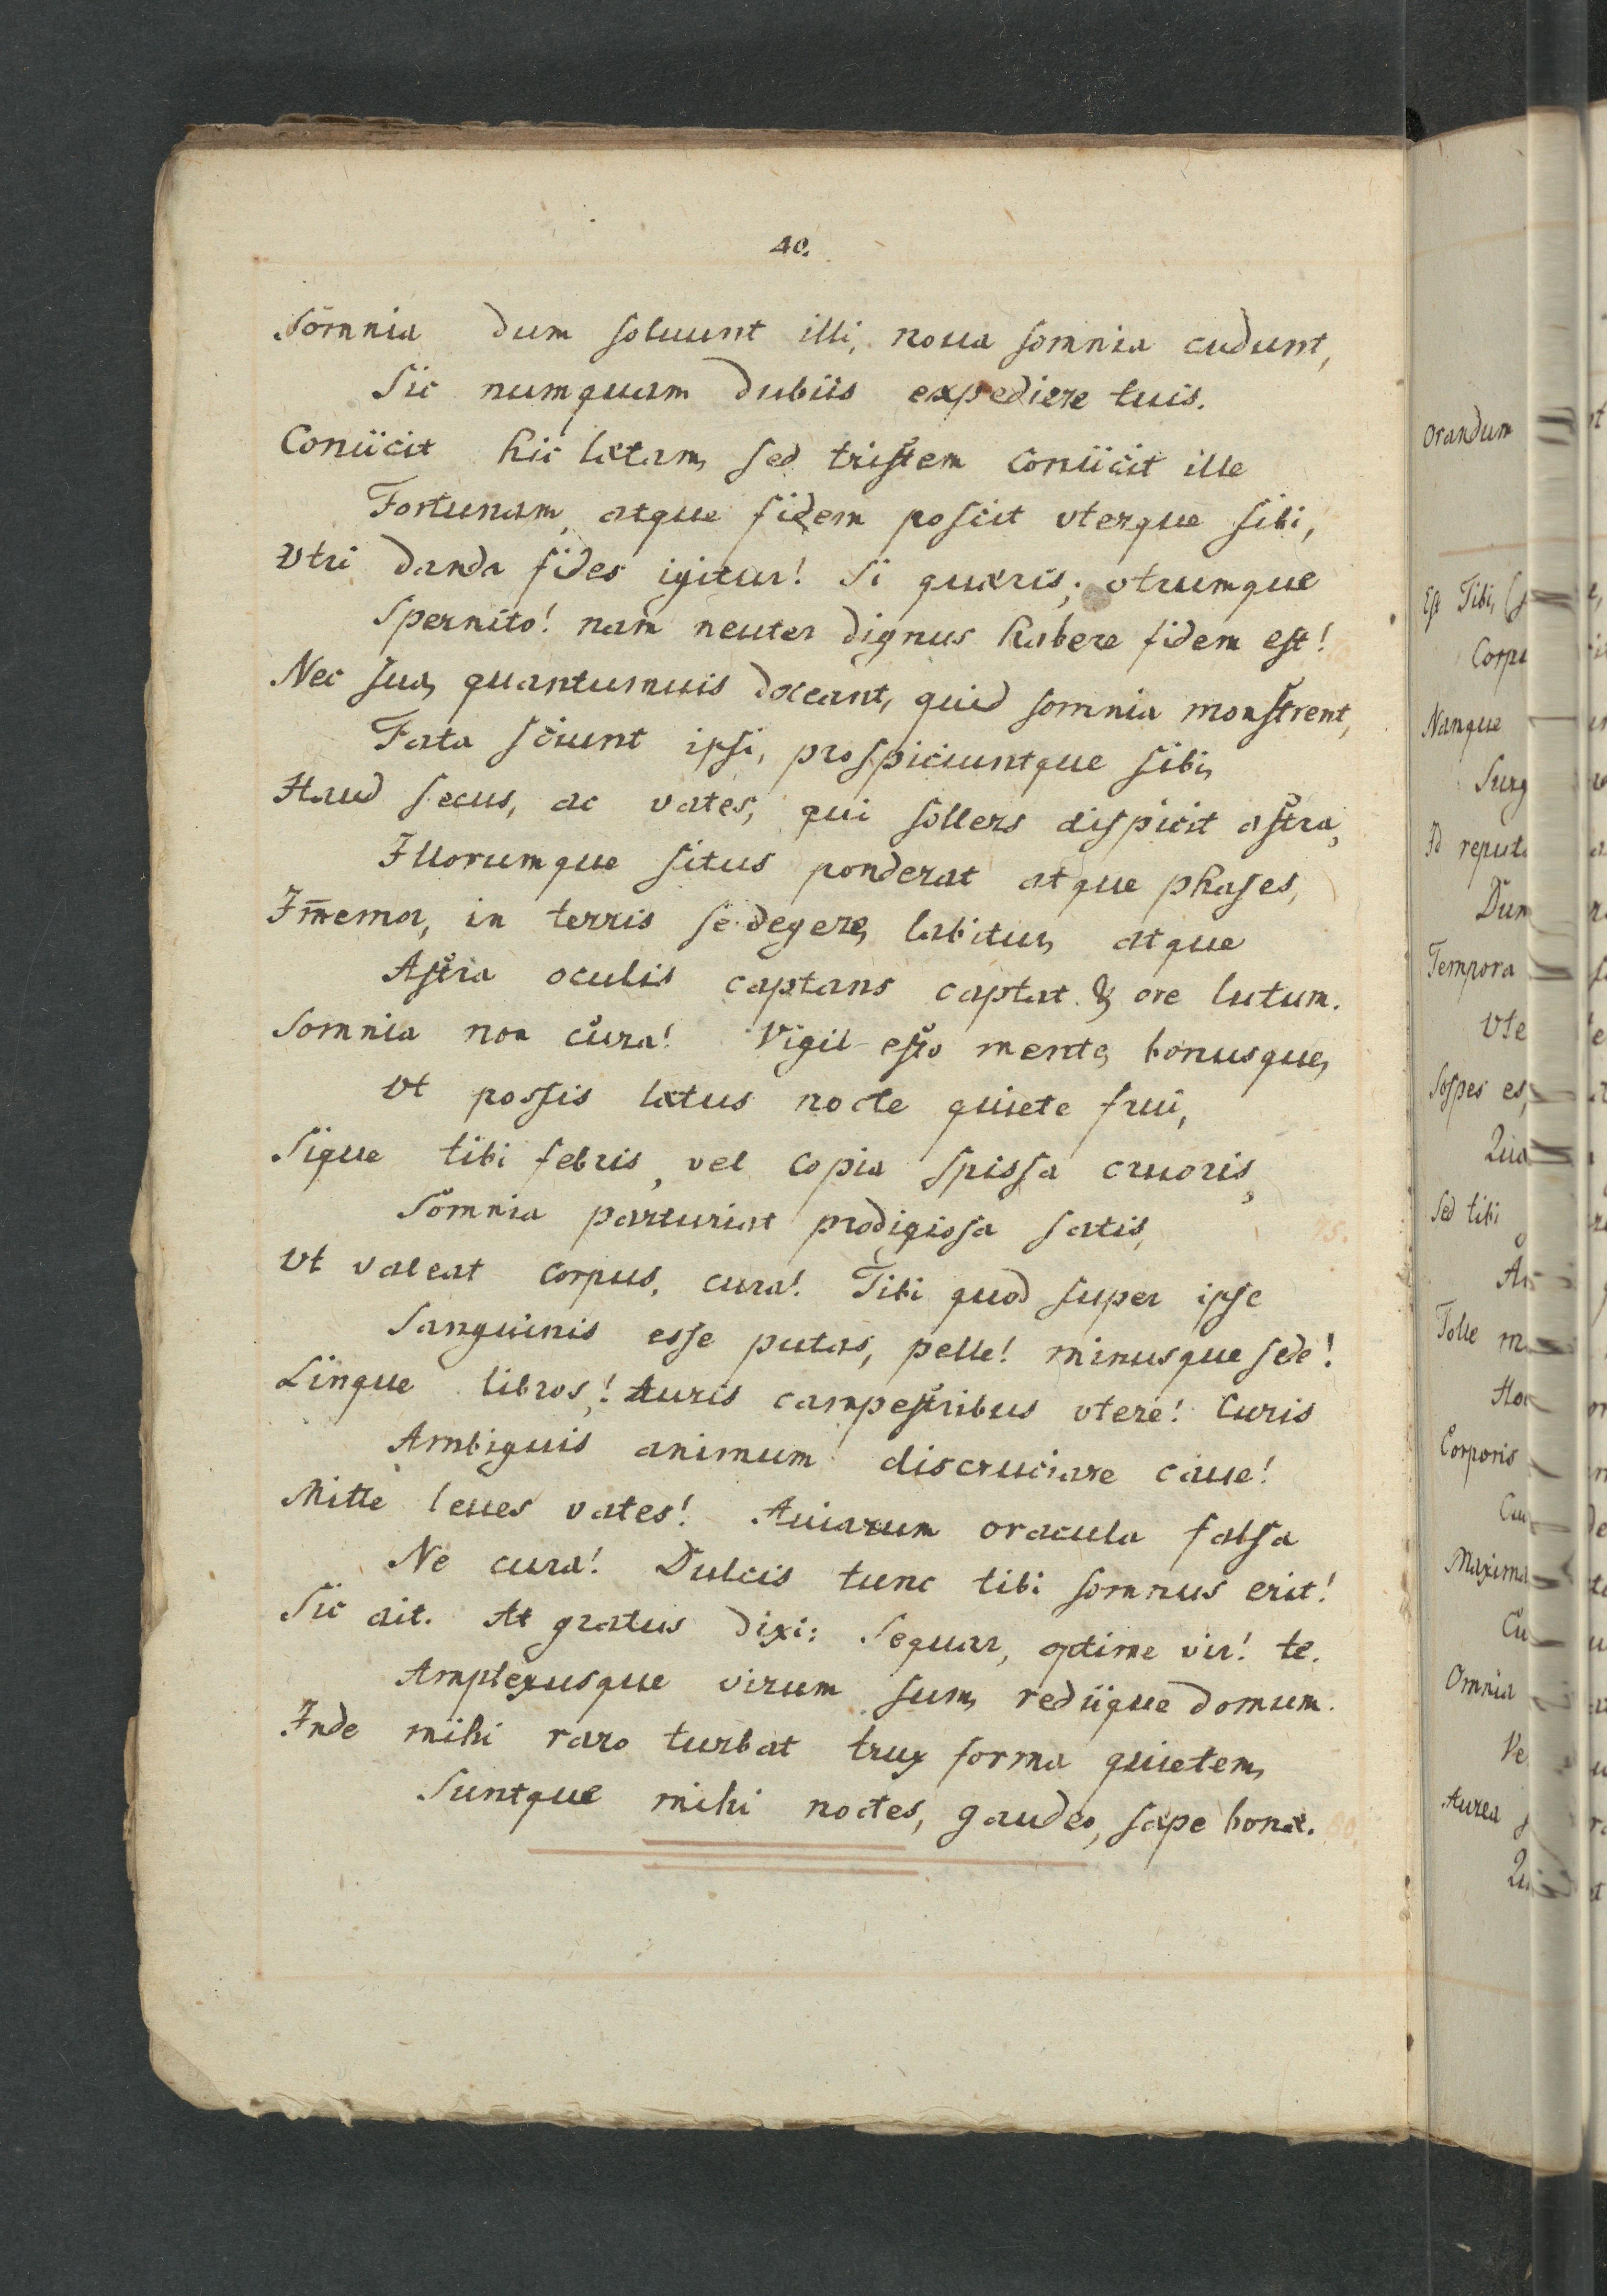 40.
Somnia dum soluunt illi, noua somnia cudunt,
Sic numquam dubiis expediere tuis.
Coniicit hic lætam, sed tristem coniicit ille
Fortunam, atque fidem poscit vterque sibi,
Vtri danda fides igitur! Si quæris; vtrumque
Spernito! nam neuter dignus habere fidem est!
Nec sua, quantumuis doceant, quid somnia monstrent,
Fata sciunt ipsi, prospiciuntque sibi,
Haud secus, ac vates, qui sollers dispicit astra,
Illorumque situs ponderat atque phases,
Im̄emor, in terris se degere, labitur, atque
Astra oculis captans captat & ore lutum.
Somnia non cura! Vigil esto mente, bonusque,
Vt possis lætus nocte quiete frui,
Sique tibi febris, vel copia spissa cruoris,
Somnia parturiat prodigiosa satis,
Vt valeat corpus, cura! Tibi quod super ipse
Sanguinis esse putas, pelle! minusque sede!
Linque libros! Auris campestribus vtere! Curis
Ambiguis animum discruciare caue!
Mitte leues vates! Auiarum oracula falsa
Ne cura! Dulcis tunc tibi somnus erit!
Sic ait. At gratus dixi: Sequar, optime vir! te.
Amplexusque virum sum, rediique domum.
Inde mihi raro turbat trux forma quietem,
Suntque mihi noctes, gaudeo, sæpe bonæ.
Orandum
Est Tibi,
Nanque
Id
Dum
Tempora
Sospes es,
Sed tibi
Tolle
Corporis
Omnia
Aurea